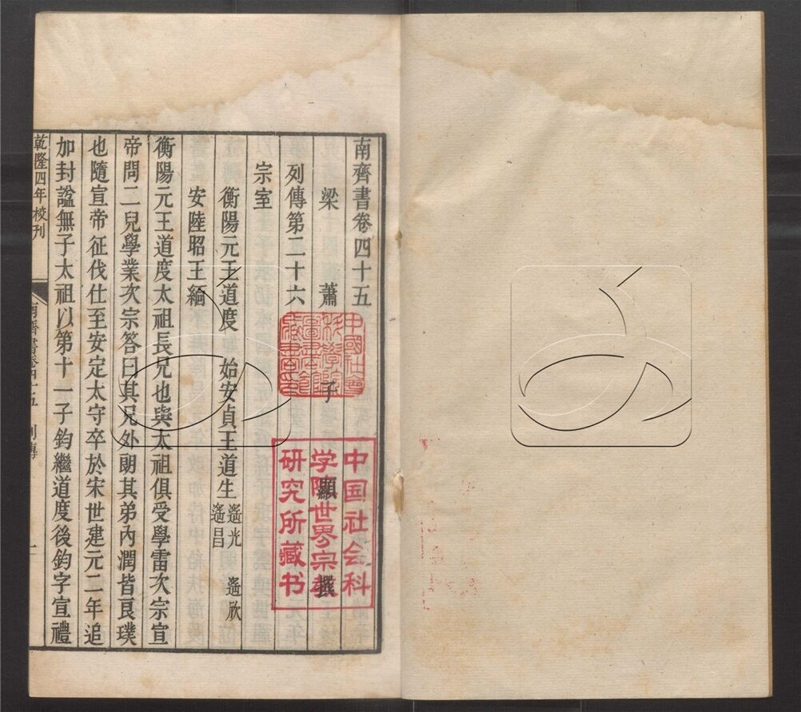 南齊書卷四十五
梁 蕭 子 顯 撰
列傳第二十六
宗室
衡陽元王道度 始安貞王道生 遙光 遙昌 遙欣
安陸昭王緬
衡陽元王道度太祖長兄也與太祖俱受學雷次宗宣
帝問二兒學業次宗答曰其兄外朗其弟內潤皆良璞
也隨宣帝征伐仕至安定太守卒於宋世建元二年追
加封謚無子太祖以第十一子鈞繼道度後鈞字宣禮
乾隆四年校刊
南齊書卷四十五 列傳 一
中國社會
科學院
圖書館
藏書印
中国社会科
学院世界宗教
研究所藏书